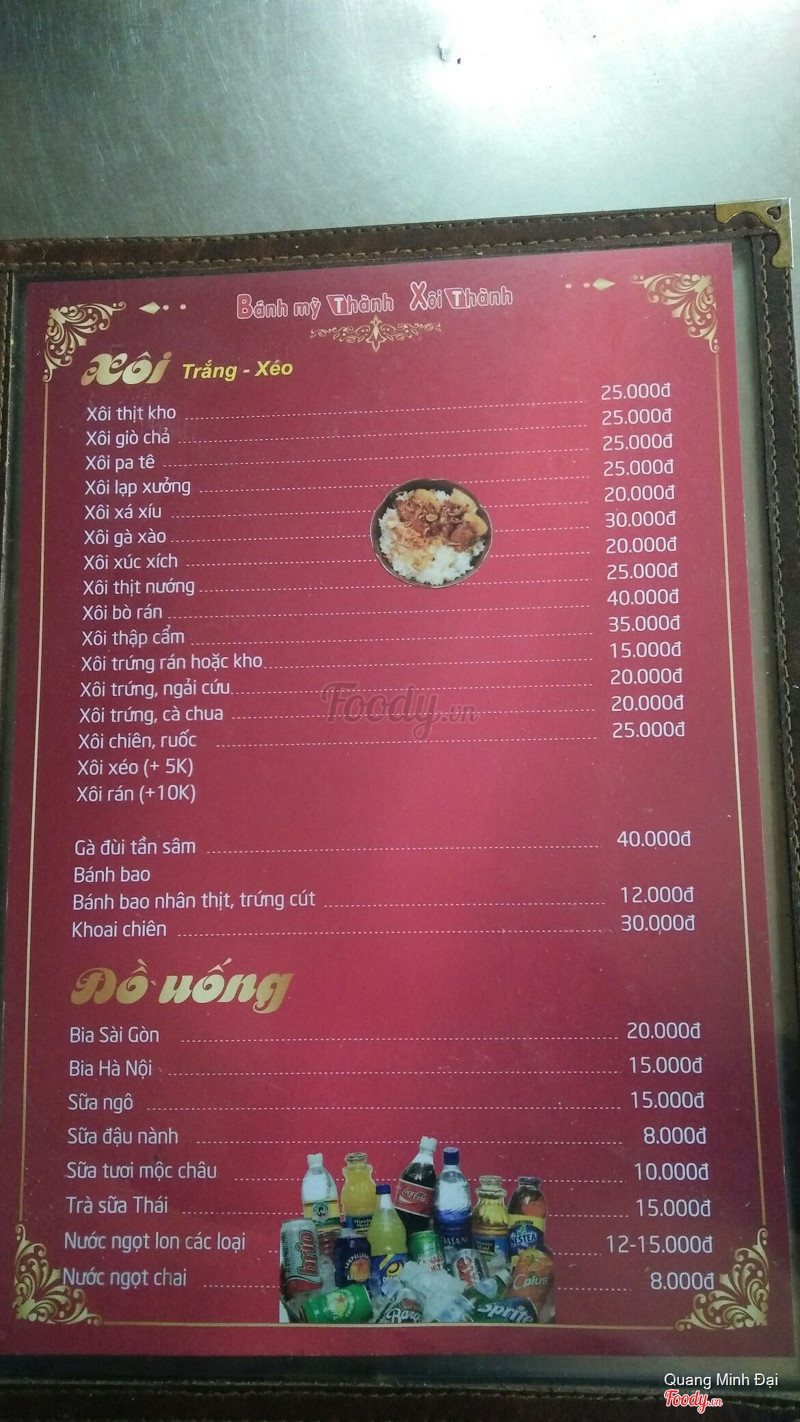 Bánh mỳ Thành Xôi Thành
Xôi Trắng - Xéo
Xôi thịt kho 25.000đ
Xôi giò chả 25.000đ
Xôi pa tê 25.000đ
Xôi lạp xưởng 25.000đ
Xôi xá xíu 20.000đ
Xôi gà xào 30.000đ
Xôi xúc xích 20.000đ
Xôi thịt nướng 25.000đ
Xôi bò rán 40.000đ
Xôi thập cẩm 35.000đ
Xôi trứng rán hoặc kho 15.000đ
Xôi trứng, ngải cứu 20.000đ
Xôi trứng, cà chua 20.000đ
Xôi chiên, ruốc 25.000đ
Xôi xéo (+ 5K)
Xôi rán (+10K)
Gà đùi tần sâm 40.000đ
Bánh bao
Bánh bao nhân thịt, trứng cút 12.000đ
Khoai chiên 30.000đ
Đồ uống
Bia Sài Gòn 20.000đ
Bia Hà Nội 15.000đ
Sữa ngô 15.000đ
Sữa đậu nành 8.000đ
Sữa tươi mộc châu 10.000đ
Trà sữa Thái 15.000đ
Nước ngọt lon các loại 12-15.000đ
Nước ngọt chai 8.000đ
Foody.vn
Coca-Cola
NESTEA
Cplus
Sprite
Quang Minh Đại
Foody.vn